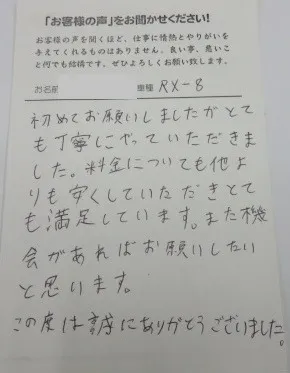 「お客様の声」をお聞かせください!
お客様の声を聞くほど、仕事に情熱とやりがいを
与えてくれるものはありません。良い事、悪いこ
と何でも結構です。ぜひよろしくお願い致します。
お名前 車種 RX-8
初めてお願いしましたがとて
も丁寧にやっていただきま
した。料金についても他よ
りも安くしていただきとて
も満足しています。また機
会があればお願いしたい
と思います。
この度は誠にありがとうございました。